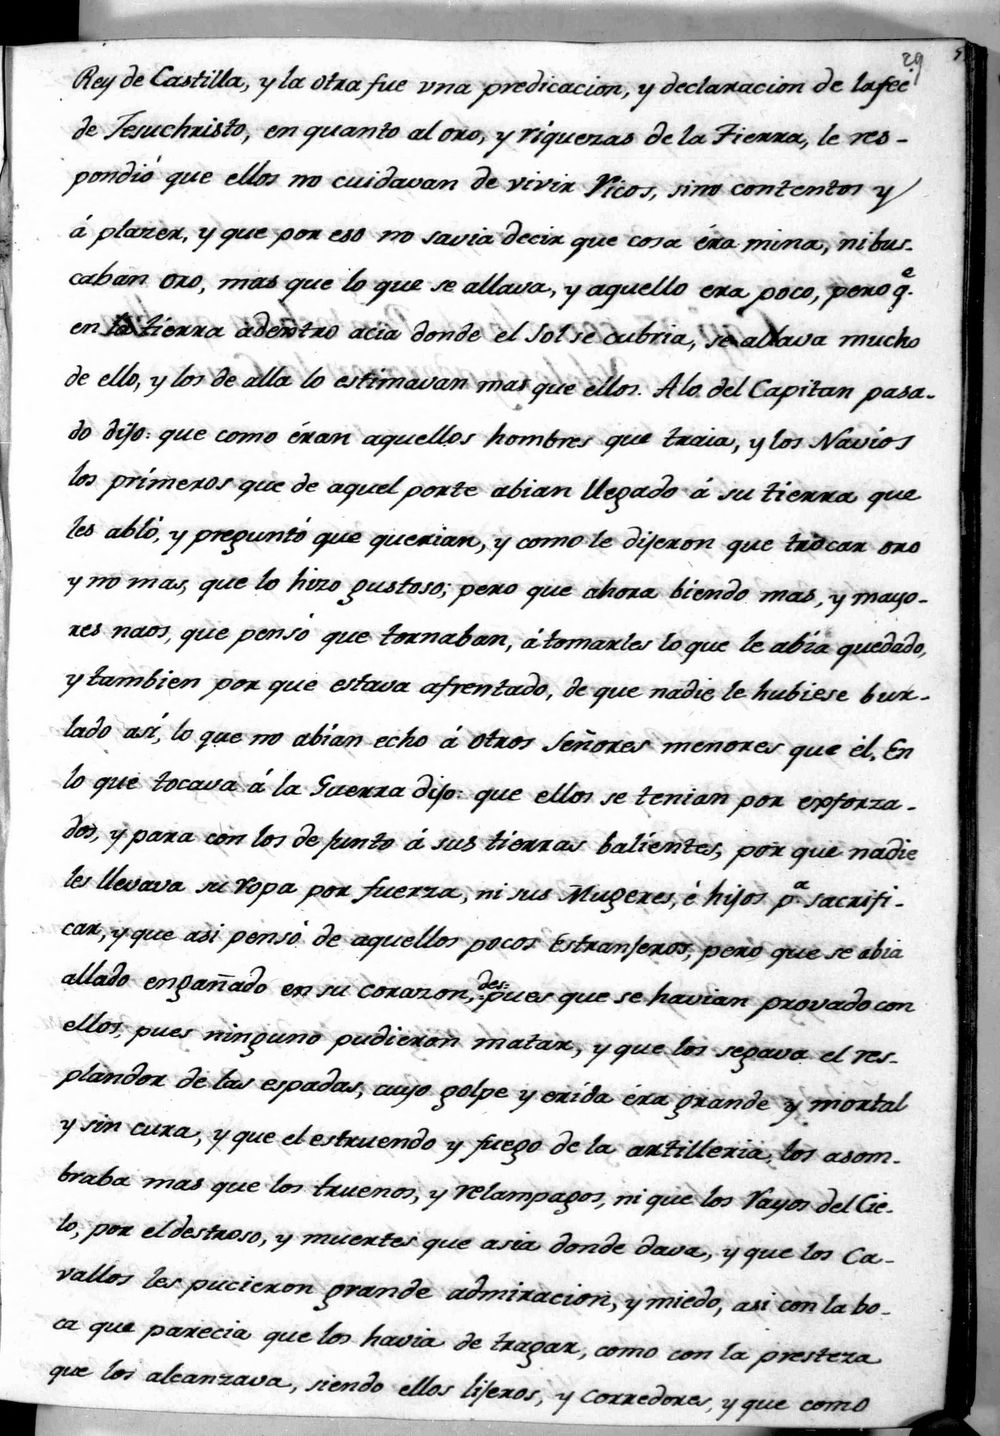 29
Rey de Castilla, y la otra fue vna predicacion, y declaracion de la feé
de Jesuchristo, en quanto al oro, y riquezas de la Tierra, le res-
pondió que ellos no cuidavan de vivir Ricos, sino contentos y
á plazer, y que por eso no savia decir que cosa éra mina, ni bus-
caban oro, mas que lo que se allava, y aquello era poco, pero q.e
en la tierra adentro acia donde el Sol se cubria, se allava mucho
de ello, y los de alla lo estimavan mas que ellos. A lo del Capitan pasa-
do dijo: que como éran aquellos hombres que traia, y los Navios
los primeros que de aquel porte abian llegado á su tierra que
les abló, y preguntó que querian, y como le dijeron que trocar oro
y no mas, que lo hizo gustoso; pero que ahora biendo mas, y mayo-
res naos, que pensó que tornaban, á tomarles lo que le abia quedado,
y tambien por que estava afrentado, de que nadie le hubiese bur-
lado asi, lo que no abian echo á otros Señores menores que él. En
lo que tocava á la Guerra dijo: que ellos se tenian por exforza-
dos, y para con los de junto á sus tierras balientes, por que nadie
les llevava su ropa por fuerza, ni sus Mugeres, é hijos p.a sacrifi-
car, y que asi pensó de aquellos pocos Estranjeros, pero que se abia
allado engañado en su corazon, des-pues que se havian provado con
ellos, pues ninguno pudieron matar, y que los segava el res-
plandor de las espadas, cuyo golpe y erida éra grande y mortal
y sin cura, y que el estruendo y fuego de la artilleria, los asom-
braba mas que los truenos, y relampagos, ni que los Rayos del Cie-
lo, por el destroso, y muertes que asia donde dava, y que los Ca-
vallos les pucieron grande admiracion, y miedo, asi con la bo-
ca que parecia que los havia de tragar, como con la presteza
que los alcanzava, siendo ellos lijeros, y Corredores, y que como